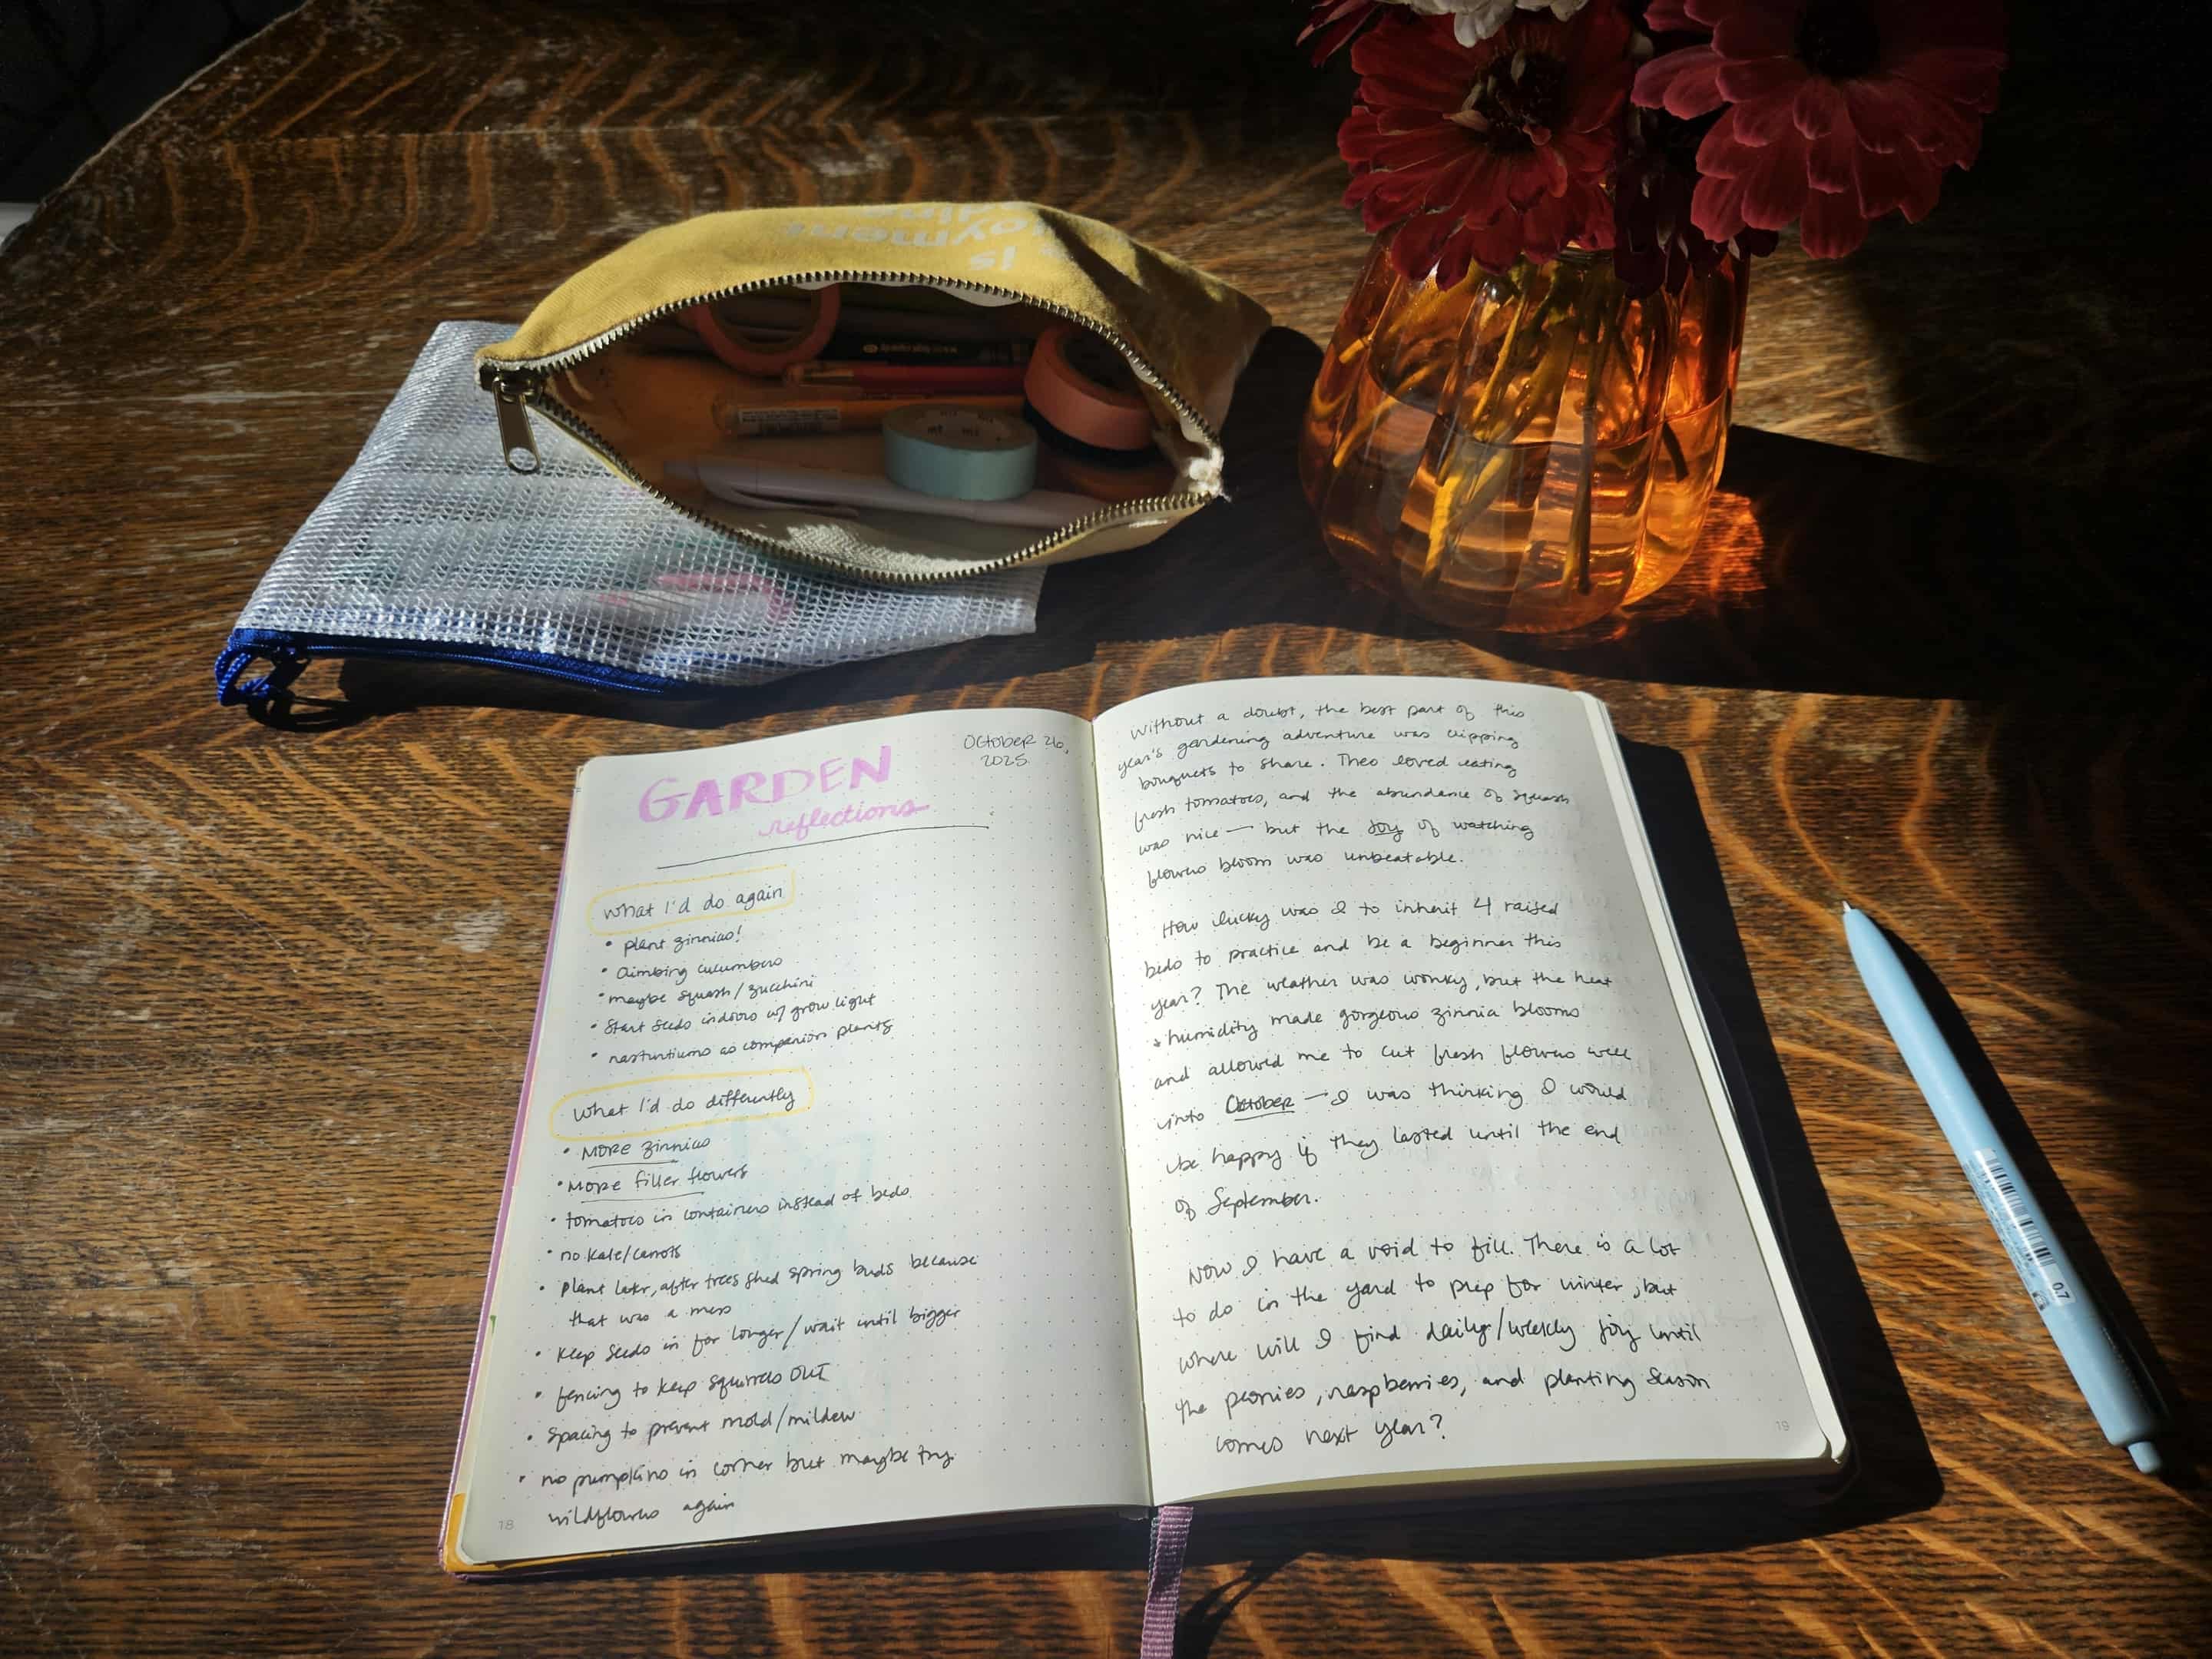 is
oyment
mt
mt
0.7
GARDEN
reflections
OCtobeR 26,
2025
what I'd do again
• plant zinnias!
• climbing cucumbers
• maybe squash/zucchini
• start seeds indoors w/ grow light
• nasturtiums as companion plants
what I'd do differently
• MORE zinnias
• MORE filler flowers
• tomatoes in containers instead of beds
• no kale/carrots
• plant later, after trees shed spring buds because
that was a mess
• keep seeds in for longer/wait until bigger
• fencing to keep squirrels OUT
• spacing to prevent mold/mildew
• no pumpkins in corner but maybe try
wildflowers again
18
without a doubt, the best part of this
year's gardening adventure was clipping
bouquets to share. Theo loved eating
fresh tomatoes, and the abundance of squash
was nice — but the joy of watching
flowers bloom was unbeatable.
How lucky was I to inherit 4 raised
beds to practice and be a beginner this
year? The weather was wonky, but the heat
+ humidity made gorgeous zinnia blooms
and allowed me to cut fresh flowers well
into October — I was thinking I would
be happy if they lasted until the end
of September.
Now I have a void to fill. There is a lot
to do in the yard to prep for winter, but
where will I find daily/weekly joy until
the peonies, raspberries, and planting season
comes next year?
19